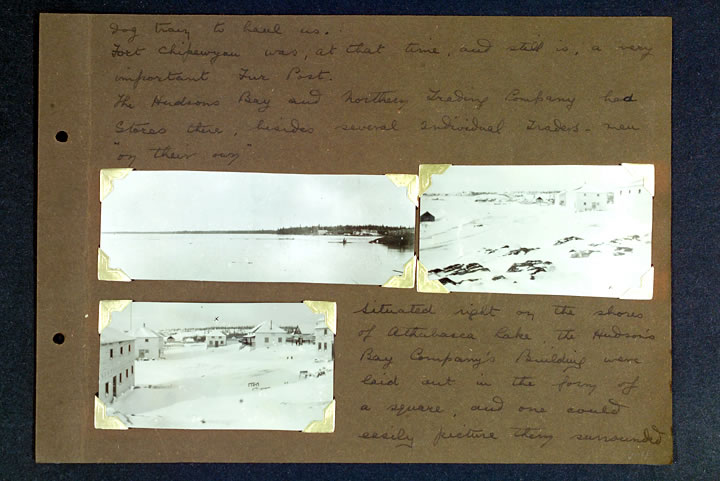 Dog train to haul us.
Fort Chipewyan was, at that time, and still is, a very
important Fur Post.
The Hudsons Bay and Northern Trading Company had
Stores there, besides several Individual Traders - men
"on their own"
Situated right on the shores
of Athabasca Lake, the Hudson's
Bay Company's Building were
laid out in the form of
a square, and one could
easily picture them surrounded